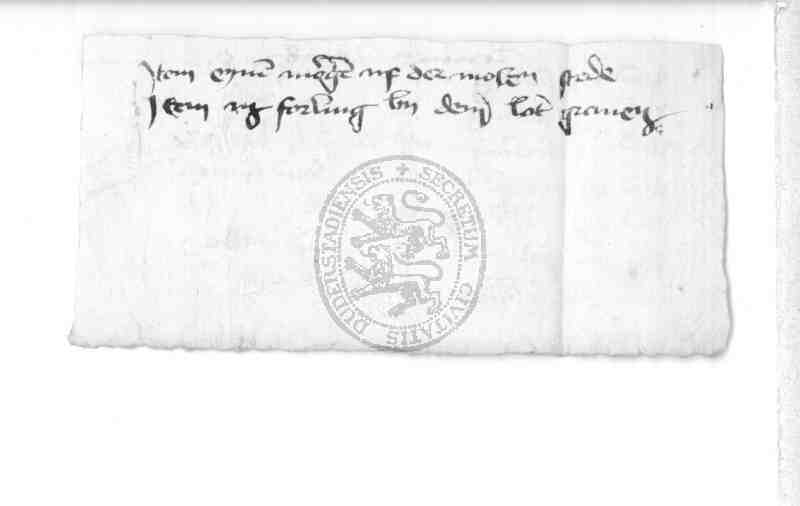 Item eynē morgē uf der molen stede
Item forling by dem graven
SECRETUM CIVITATIS DUDERSTADIENSIS